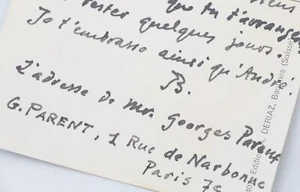 que tu t'arranges
rester quelques jours.
Je t'embrasse ainsi qu'André.
B.
L'adresse de Mr. Georges Parent
G. PARENT, 1 Rue de Narbonne
Paris 7e
DERIAZ, Baulmes (Suisse)